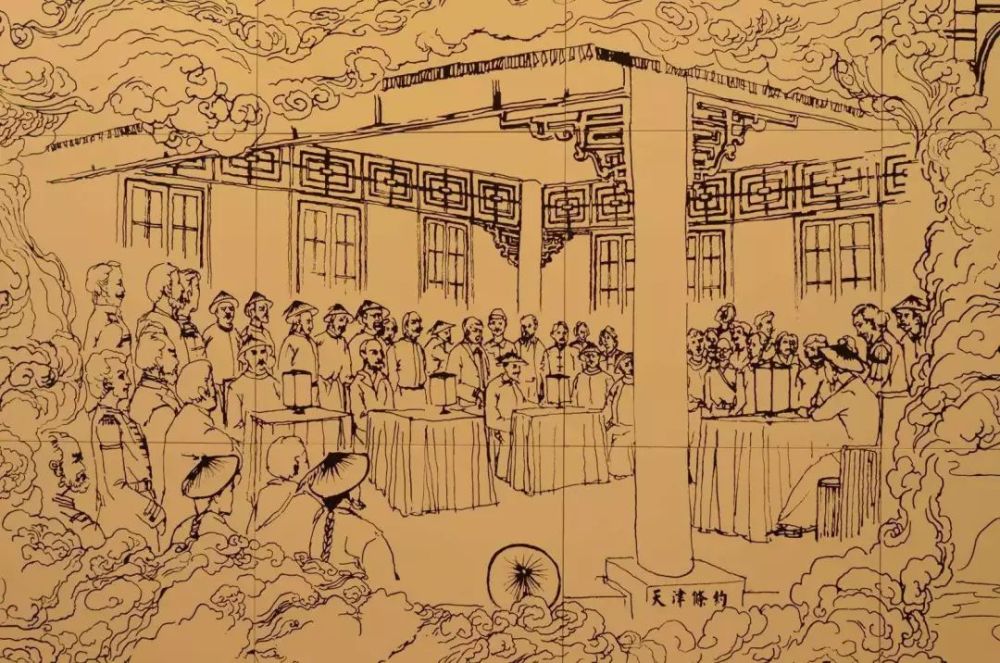 天津條約